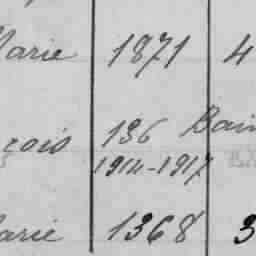 Marie 1871 4
çois 136 Bain
1914-1917
Marie 1368 3